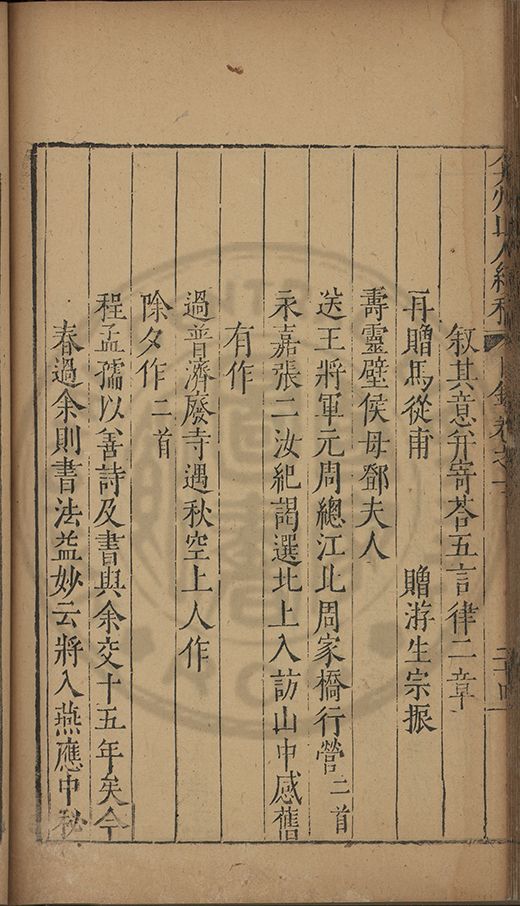 弇州山人續稿 目錄卷之一 二十四
敘其意并寄荅五言律二章
再贈馬從甫 贈游生宗振
壽靈壁侯母鄧夫人
送王將軍元周總江北周家橋行營二首
永嘉張二汝紀謁選北上入訪山中感舊
有作
過普濟廢寺遇秋空上人作
除夕作二首
程孟孺以善詩及書與余交十五年矣今
春過余則書法益妙云將入燕應中秘